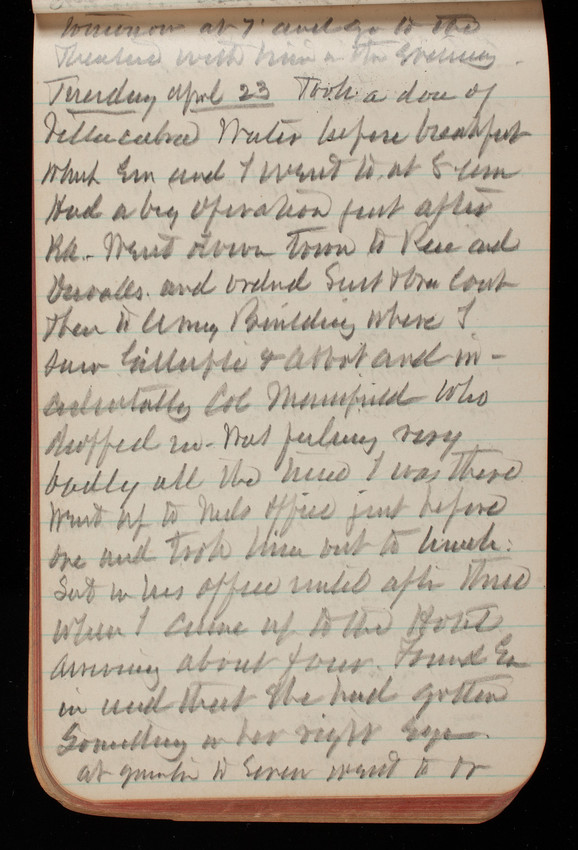 tomorrow at 7 and go to the
Theatre with him in the Evening.
Tuesday april 23 Took a dose of
Villacabras Water before breakfast
which Em and I went to at 8 am
Had a big operation just after
Bd. Went down town to Rice and
and ordered Suit & over Coat
then to Army Building where I
saw Gillespie & Abbot and in-
cidentally Col Mansfield who
dropped in. Was feeling very
badly all the time I was there
Went up to Neds office just before
one and took him out to lunch.
Sat in his office until after three
when I came up to the Hotel
arriving about four. Found Em
in and that she had gotten
Something in her right Eye.
at quarter to Seven went to Dr